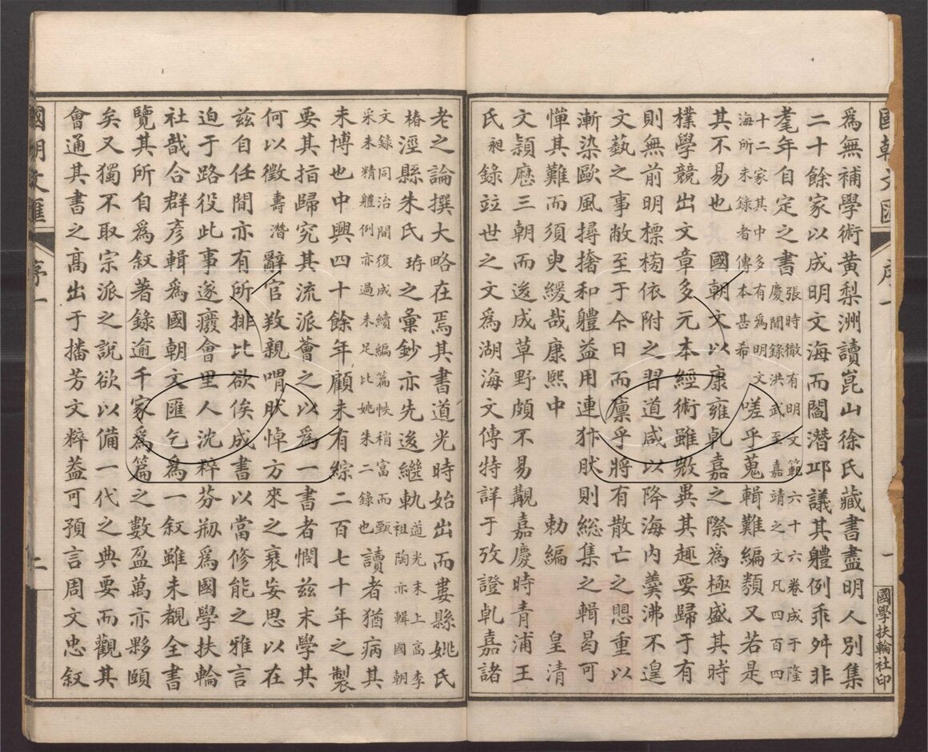 國朝文匯 序一 一 國學扶輪社印
為無補學術黄梨洲讀崑山徐氏藏書盡明人別集
二十餘家以成明文海而閻潛邱議其體例乖舛非
耄年自定之書張時徹有明文範六十六卷成于隆慶間錄洪武至嘉靖之文凡四百四
十二家其中多有為明文海所未錄者傳本甚希嗟乎蒐輯難編纇又若是
其不易也 國朝文以康雍乾嘉之際為極盛其時
樸學競出文章多元本經術雖斅異其趣要歸于有
則無前明標榜依附之習道咸以降海內羹沸不遑
文藝之事敝至于今日而懍乎將有散亡之思重以
漸染歐風撏撦和體益用連犿肰則総集之輯曷可
憚其難而須臾緩哉康熙中 勅編 皇清
文頴歷三朝而逡成草野頗不易覯嘉慶時青浦王
氏昶錄竝世之文為湖海文傳特詳于攷證乾嘉諸
老之論撰大略在焉其書道光時始出而婁縣姚氏
椿涇縣朱氏珔之彙鈔亦先逡繼軌道光末上高李祖陶亦輯國朝
文錄同治間復成續編篇帙稍富而甄采未精體例亦過未足比姚朱二錄也讀者猶病其
未博也中興四十餘年顧未有綜二百七十年之製
要其指歸究其流派薈之以為一書者憫茲末學其
何以徵壽潛辭官敚親喟肰悼方來之衰安思以在
茲自任間亦有所排比欲俟成書以當修能之雅言
迫于路役此事遂廢會里人沈粹芬剏為國學扶輪
社哉合群彦輯為國朝文匯乞為一叙雖未覩全書
覽其所自為叙著錄逾千家為篇之數盈萬亦夥頤
矣又獨不取宗派之說欲以備一代之典要而觀其
會通其書之高出于播芳文粹葢可預言周文忠叙
國朝文匯 序一 二